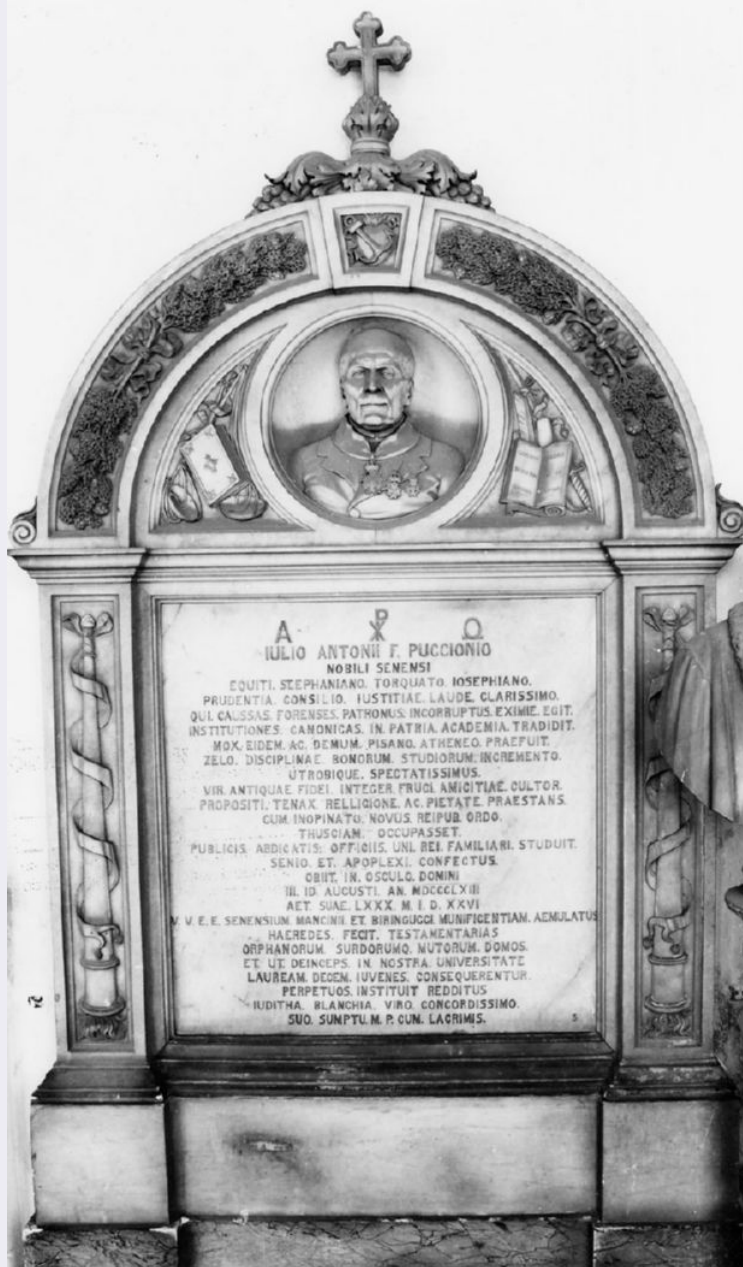 Α ☧ Ω
IULIO ANTONII F. PUCCIONIO
NOBILI SENENSI
EQUITI. STEPHANIANO. TORQUATO. IOSEPHIANO.
PRUDENTIA. CONSILIO. IUSTITIAE. LAUDE. CLARISSIMO.
QUI. CAUSSAS. FORENSES. PATRONUS. INCORRUPTUS. EXIMIE. EGIT.
INSTITUTIONES. CANONICAS. IN. PATRIA. ACADEMIA. TRADIDIT.
MOX. EIDEM. AC. DEMUM. PISANO. ATHENEO. PRAEFUIT.
ZELO. DISCIPLINAE. BONORUM. STUDIORUM. INCREMENTO.
UTROBIQUE. SPECTATISSIMUS.
VIR. ANTIQUAE. FIDEI. INTEGER. FRUGI. AMICITIAE. CULTOR.
PROPOSITI. TENAX. RELLIGIONE. AC. PIETATE. PRAESTANS.
CUM. INOPINATO. NOVUS. REIPUB. ORDO.
THUSCIAM. OCCUPASSET.
PUBLICIS. ABDICATIS. OFFICIIS. UNI. REI. FAMILIARI. STUDUIT.
SENIO. ET. APOPLEXI. CONFECTUS.
OBIIT. IN. OSCULO. DOMINI
III. ID. AUGUSTI. AN. MDCCCLXIII
AET. SUAE. LXXX. M. I. D. XXVI
V. V. E. E. SENENSIUM. MANCINII. ET. BIRINGUCCI. MUNIFICENTIAM. AEMULATUS
HAEREDES. FECIT. TESTAMENTARIAS
ORPHANORUM. SURDORUMQ. MUTORUM. DOMOS.
ET. UT. DEINCEPS. IN. NOSTRA. UNIVERSITATE
LAUREAM. DECEM. IUVENES. CONSEQUERENTUR.
PERPETUOS. INSTITUIT. REDDITUS
IUDITHA. BLANCHIA. VIRO. CONCORDISSIMO.
SUO. SUMPTU. M. P. CUM. LACRIMIS.
5